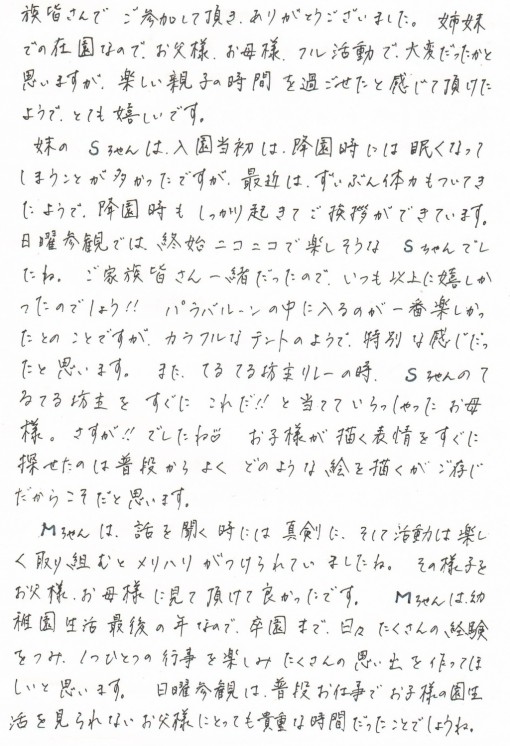 族皆さんでご参加して頂き、ありがとうございました。 姉妹
での在園なので、お父様、お母様、フル活動で、大変だったかと
思いますが、楽しい親子の時間を過ごせたと感じて頂けた
ようで、とても嬉しいです。
妹の Sちゃんは、入園当初は、降園時には眠くなって
しまうことが多かったですが、最近は、ずいぶん体力もついてき
たようで、降園時もしっかり起きてご挨拶ができています。
日曜参観では、終始ニコニコで楽しそうな Sちゃんでし
たね。 ご家族皆さん一緒だったので、いつも以上に嬉しか
ったのでしょう!! パラバルーンの中に入るのが一番楽しかっ
たとのことですが、カラフルなテントのようで、特別な感じだっ
たと思います。 また、てるてる坊主リレーの時、 Sちゃんのて
るてる坊主を すぐに これだ!! と当てていらっしゃった お母
様。さすが!! でしたね♡ お子様が描く表情をすぐに
探せたのは普段から よく どのような絵を描くかご存じ
だからこそだと思います。
Mちゃんは、話を聞く時には真剣に、そして活動は楽し
く取り組むとメリハリがつけられていましたね。 その様子を
お父様、お母様に見て頂けて良かったです。 Mちゃんは、幼
稚園生活最後の年なので、卒園まで、日々たくさんの経験
をつみ、1つひとつの行事を楽しみたくさんの思い出を作ってほ
しいと思います。 日曜参観は、普段お仕事でお子様の園生
活を見られないお父様にとっても貴重な時間だったことでしょうね。